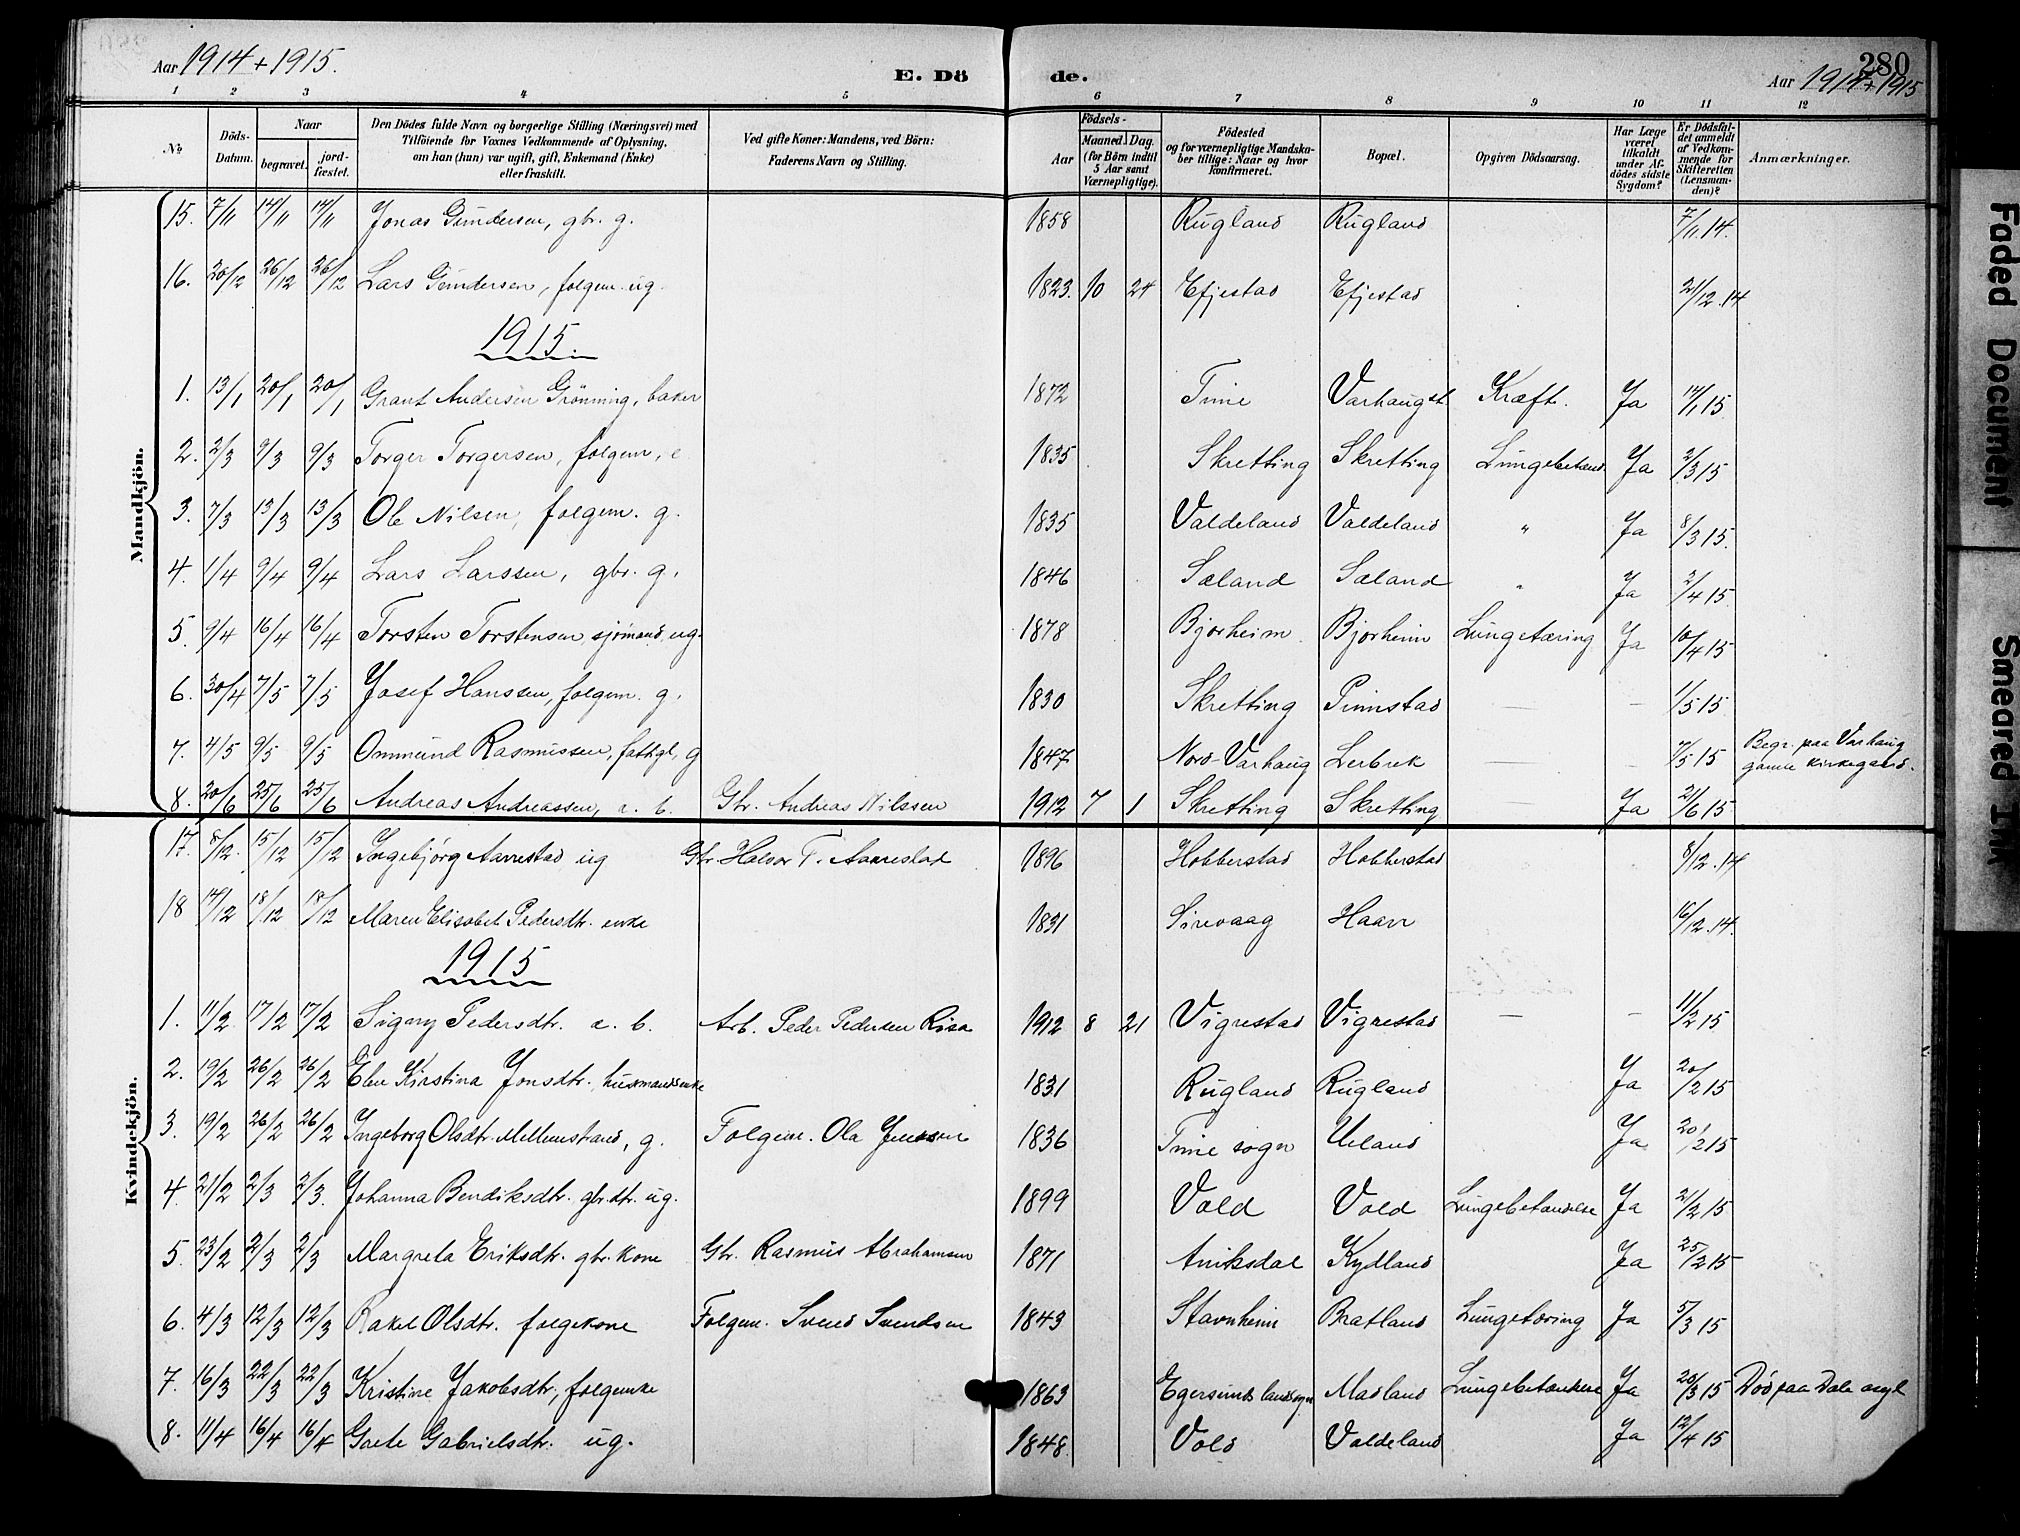 Aar 1914 + 1915.
E. Dö de.
280
Aar 1914 + 1915
1 2 3 4 5 6 7 8 9 10 11 12
No.
Döds-Datum.
Naar
begravet.
jordfæstet.
Den Dödes fulde Navn og borgerlige Stilling (Næringsvei) med Tilföiende for Voxnes Vedkommende af Oplysning, om han (hun) var ugift, gift, Enkemand (Enke) eller fraskilt.
Ved gifte Koner: Mandens, ved Börn: Faderens Navn og Stilling.
Födsels-
Aar
Maaned. Dag.
(for Börn indtil 5 Aar samt Værnepligtige).
Födested og for værnepligtige Mandskaber tillige: Naar og hvor konfirmeret.
Bopæl.
Opgiven Dödsaarsag.
Har Læge været tilkaldt under Afdödes sidste Sygdom?
Er Dödsfaldet anmeldt af Vedkommende for Skifteretten (Lensmanden)?
Anmærkninger.
Mandkjön.
15. 7/11 14/11 14/11 Jonas Gundersen, gbr. g. 1858 Rugland Rugland 7/11.14.
16. 20/12 26/12 26/12 Lars Gundersen, folgem. ug. 1823. 10 24 Efjestad Efjestad 21/12.14
1915.
1. 13/1 20/1 20/1 Grant Andersen Grönning, baker 1872 Time Varhaugst. Kræft. Ja 14/1 15
2. 2/3 9/3 9/3 Torger Torgersen, folgem, e 1835 Skretting Skretting Lungebetænd Ja 2/3 15
3. 7/3 13/3 13/3 Ole Nilsen, folgem. g. 1835 Valdeland Valdeland " Ja 8/3 15.
4. 1/4 9/4 9/4 Lars Larssen, gbr. g. 1846 Sæland Sæland " Ja 2/4 15.
5. 9/4 16/4 16/4 Torsten Torstensen, sjömand, ug. 1878 Bjorheim Bjorheim Lungetæring Ja 10/4 15
6. 30/4 7/5 7/5 Josef Hanssen, folgem. g. 1830 Skretting Pinnstad — — 1/5 15
7. 4/5 9/5 9/5 Ommund Rasmussen, fattigl, g 1847 Nord-Varhaug Lerbrek — — 7/5 15 Begr. paa Varhaug gamle kirkegaard.
8. 20/6 25/6 25/6 Andreas Andreassen, e. b. Gbr. Andreas Nilssen 1912 7 1 Skretting Skretting Ja 21/6 15
Kvindekjön.
17. 8/12. 15/12 15/12 Ingebjörg Aarrestad ug Gbr. Halvor T. Aarrestad 1896 Hobberstad Hobberstad 8/12.14
18 14/12 18/12 18/12 Maren Elisabet Pedersdtr. enke 1831 Sirevaag Haarr 16/12.14.
1915
1. 11/2 17/2 17/2 Signy Pedersdtr. e. b. Arb. Peder Pedersen Risa 1912 8 21 Vigrestad Vigrestad — — 11/2 15
2. 19/2 26/2 26/2 Elen Kirstina Jonsdtr. husmandsenke 1831 Rugland Rugland Ja 20/2 15
3. 19/2 26/2 26/2 Ingeborg Olsdtr. Mellemstrand, g. Folgem. Ola Jenssen 1836 Time sogn Ueland Ja 20/2 15
4. 21/2 2/3 2/3. Johanna Bendiksdtr. gbr.dtr. ug. 1899 Vold Vold Lungebetændelse Ja 21/2 15
5. 23/2 2/3 2/3 Margreta Eriksdtr. gbr. kone Gbr. Rasmus Abrahamsen 1871 Aniksdal Kydland Ja 25/2 15
6. 4/3 12/3 12/3 Rakel Olsdtr. folgekone Folgem. Svend Svendsen 1843 Stavnheim Bratland Lungetæring Ja 5/3 15
7. 16/3 22/3 22/3 Kristine Jakobsdtr, folgenke 1863 Egersunds landsogn Madland Lungebetændelse Ja 20/3 15 Död paa Dale asyl
8. 11/4 16/4 16/4 Grete Gabrielsdtr. ug. 1848. Vold Valdeland Ja 12/4 15
Faded Document
Smeared Ink